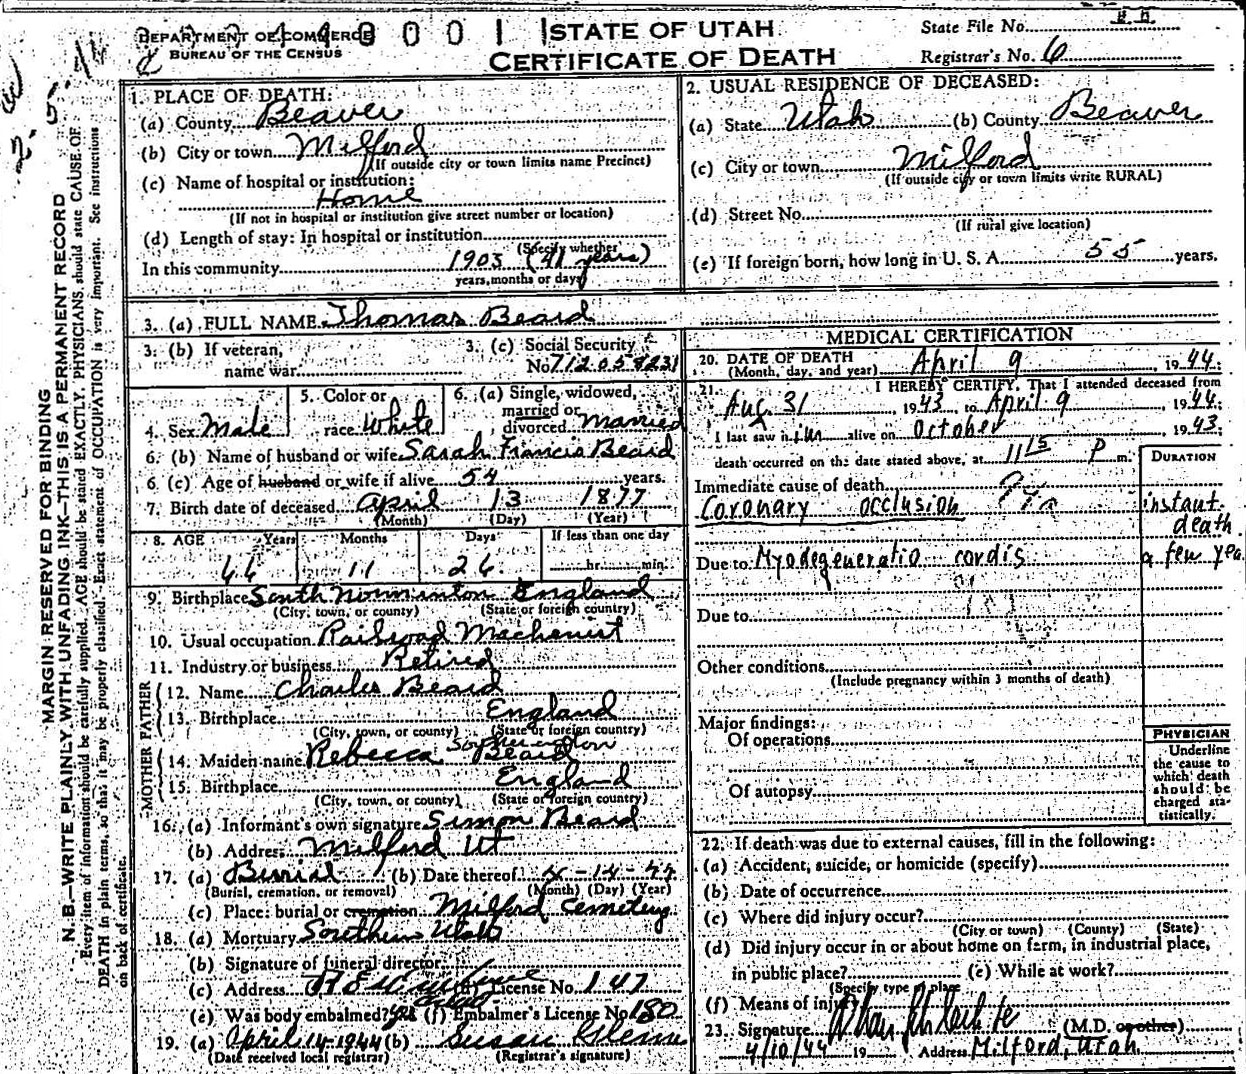 DEPARTMENT OF COMMERCE
BUREAU OF THE CENSUS
STATE OF UTAH
CERTIFICATE OF DEATH
State File No.
Registrar's No. 6
MARGIN RESERVED FOR BINDING
N. B.—WRITE PLAINLY, WITH UNFADING INK—THIS IS A PERMANENT RECORD
Every item of information should be carefully supplied. AGE should be stated EXACTLY. PHYSICIANS should state CAUSE OF
DEATH in plain terms, so that it may be properly classified. Exact statement of OCCUPATION is very important. See instructions
on back of certificate.
1. PLACE OF DEATH:
(a) County Beaver
(b) City or town Milford
(If outside city or town limits name Precinct)
(c) Name of hospital or institution:
Home
(If not in hospital or institution give street number or location)
(d) Length of stay: In hospital or institution
(Specify whether
In this community 1903 (41 years)
years, months or days)
2. USUAL RESIDENCE OF DECEASED:
(a) State Utah (b) County Beaver
(c) City or town Milford
(If outside city or town limits write RURAL)
(d) Street No.
(If rural give location)
(e) If foreign born, how long in U. S. A. 55 years.
3. (a) FULL NAME Thomas Beard
3. (b) If veteran, name war
3. (c) Social Security No. 712058231
4. Sex Male
5. Color or race White
6. (a) Single, widowed, married or divorced Married
6. (b) Name of husband or wife Sarah Francis Beard
6. (c) Age of husband or wife if alive 54 years.
7. Birth date of deceased April 13 1877
(Month) (Day) (Year)
8. AGE Years Months Days If less than one day
66 11 26 hr. min.
9. Birthplace South England
(City, town, or county) (State or foreign country)
10. Usual occupation Railroad Machenist
11. Industry or business Retired
FATHER
12. Name Charles Beard
13. Birthplace England
(City, town, or county) (State or foreign country)
MOTHER
14. Maiden name Rebecca Beard
15. Birthplace England
(City, town, or county) (State or foreign country)
16. (a) Informant's own signature Simon Beard
(b) Address Milford Ut
17. (a) Burial (b) Date thereof 4-14-44
(Burial, cremation, or removal) (Month) (Day) (Year)
(c) Place: burial or cremation Milford Cemetery
18. (a) Mortuary Southern Utah
(b) Signature of funeral director
(c) Address License No. 147
(e) Was body embalmed? yes (f) Embalmer's License No. 180
19. (a) April 14-1944 (b) Susan Glenn
(Date received local registrar) (Registrar's signature)
MEDICAL CERTIFICATION
20. DATE OF DEATH
(Month, day, and year) April 9 1944
21. I HEREBY CERTIFY, That I attended deceased from
Aug. 31, 1943, to April 9, 1944
I last saw him alive on October, 1943;
death occurred on the date stated above, at 11 15 P m.
DURATION
Immediate cause of death
Coronary occlusion instant death
Due to Myodegeneratio cordis a few yea
Due to
Other conditions
(Include pregnancy within 3 months of death)
Major findings:
Of operations
Of autopsy
PHYSICIAN
Underline
the cause to
which death
should be
charged sta-
tistically.
22. If death was due to external causes, fill in the following:
(a) Accident, suicide, or homicide (specify)
(b) Date of occurrence
(c) Where did injury occur?
(City or town) (County) (State)
(d) Did injury occur in or about home on farm, in industrial place,
in public place? (e) While at work?
(Specify type of place
(f) Means of injury
23. Signature (M.D. or other)
4/10/44 19 Address Milford, Utah